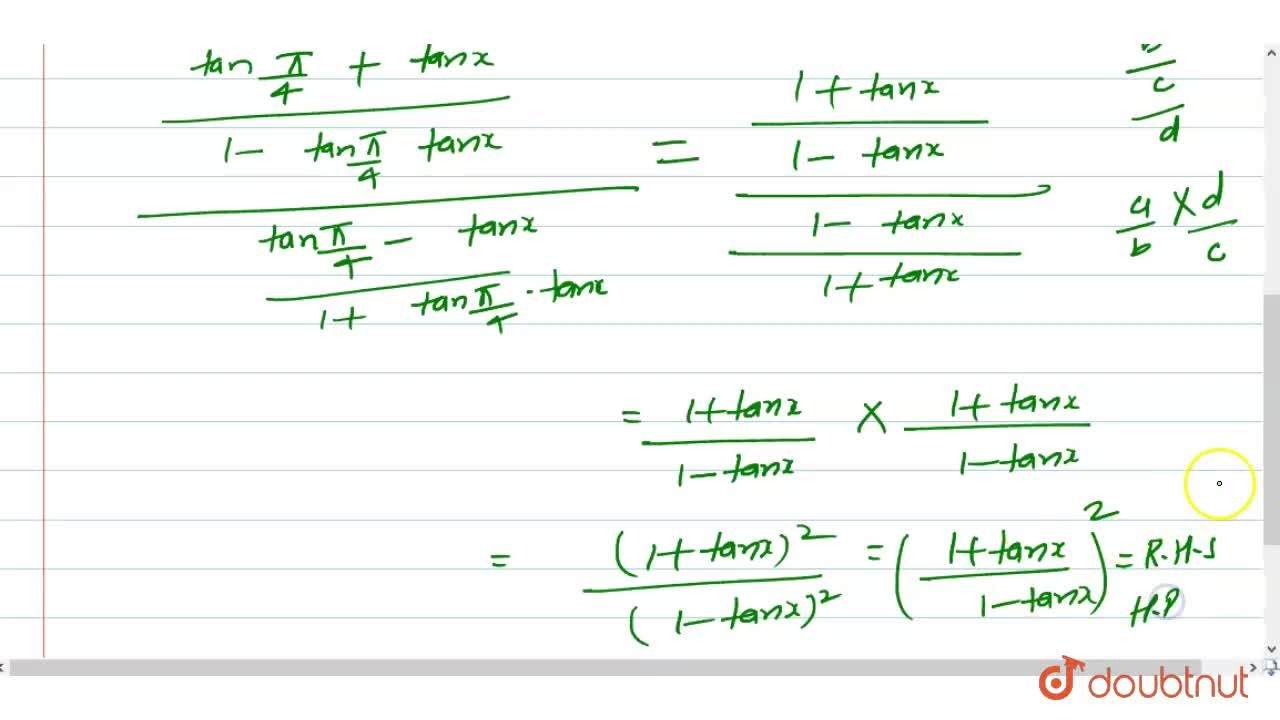 tan π/4 + tanx
1 - tan π/4 tanx
tan π/4 - tanx
1 + tan π/4 . tanx
=
1 + tanx
1 - tanx
1 - tanx
1 + tanx
c
d
a/b × d/c
= 1+tanx / 1-tanx × 1+tanx / 1-tanx
= (1+tanx)² / (1-tanx)² = (1+tanx / 1-tanx)² = R.H.S
H.P
doubtnut